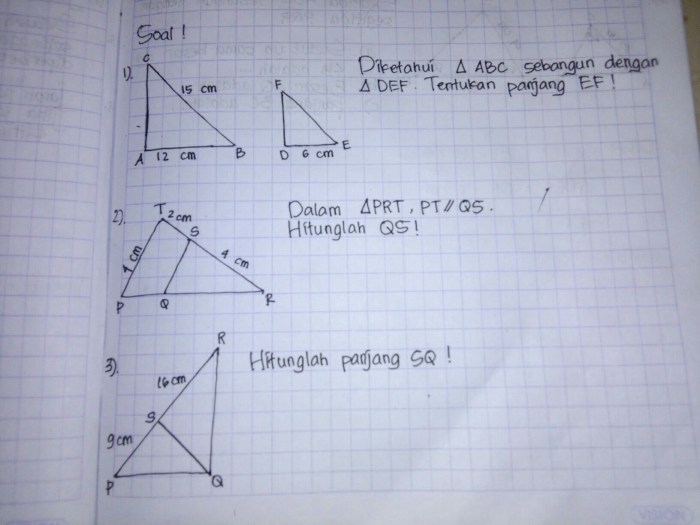 Soal !
1).
C
15 cm
A 12 cm B
F
D 6 cm E
Diketahui Δ ABC sebangun dengan
Δ DEF. Tentukan panjang EF !
2).
T 2 cm
S
4 cm
7 cm
P Q R
Dalam ΔPRT, PT // QS.
Hitunglah QS !
3).
R
16 cm
S
9 cm
P Q
Hitunglah panjang SQ !
VISION